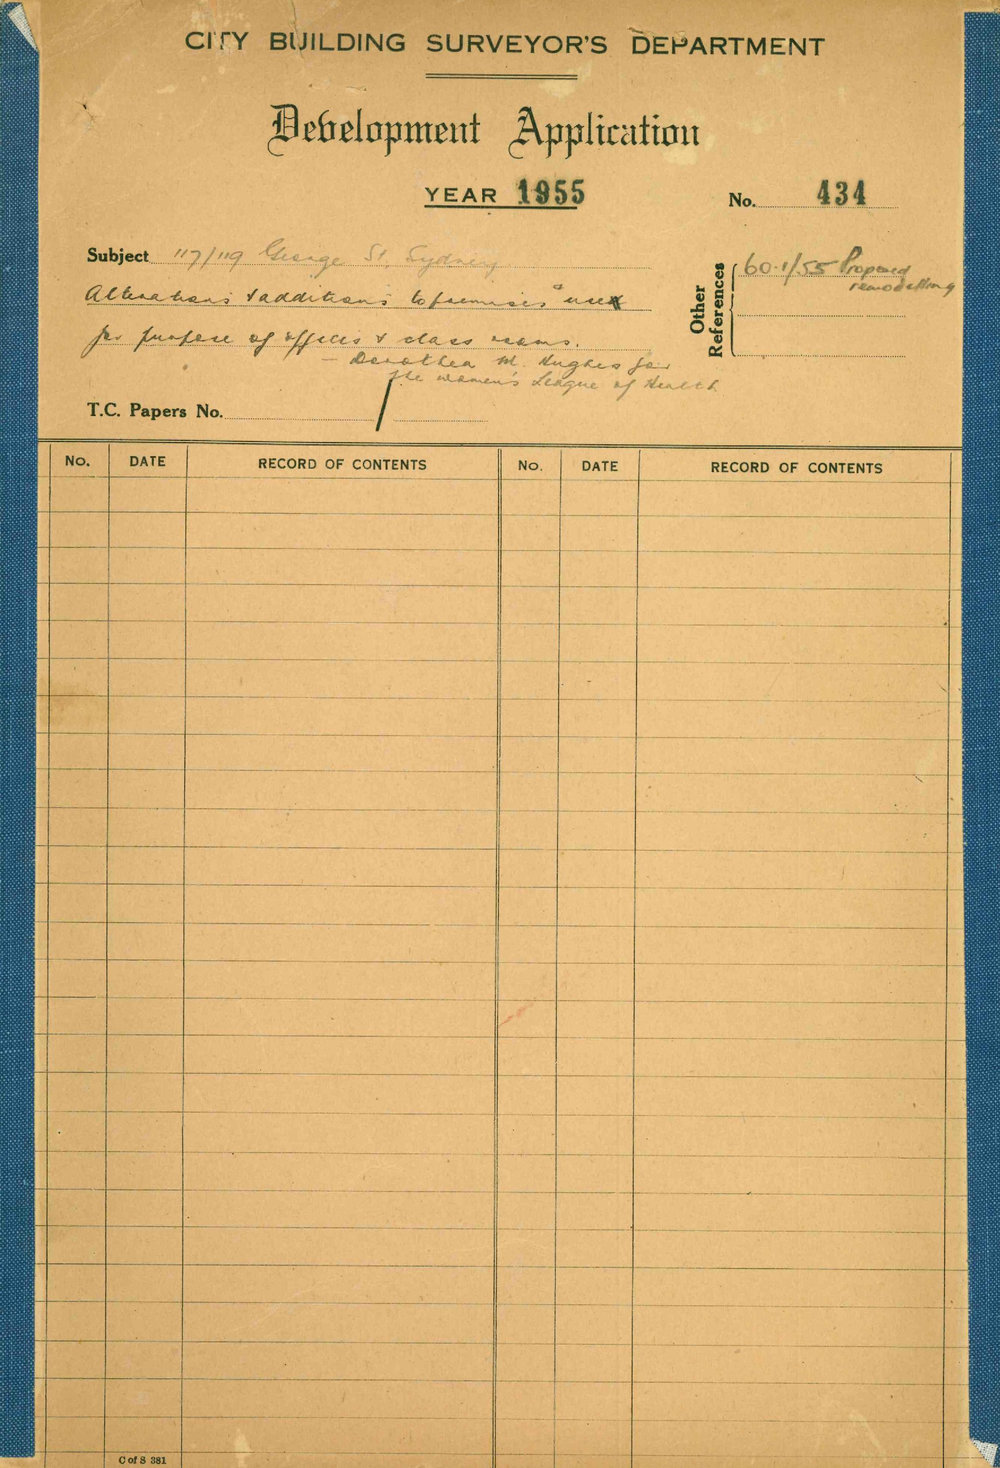 CITY BUILDING SURVEYOR'S DEPARTMENT
Development Application
YEAR 1955
No. 434
Subject 117/119 George St. Sydney
Alterations & additions to premises used
for purpose of offices & class rooms.
— Dorothea M. Hughes for
the Women's League of Health
Other References
60.1/55 Proposed
remodelling
T.C. Papers No. /
No. DATE RECORD OF CONTENTS No. DATE RECORD OF CONTENTS
C of S 381